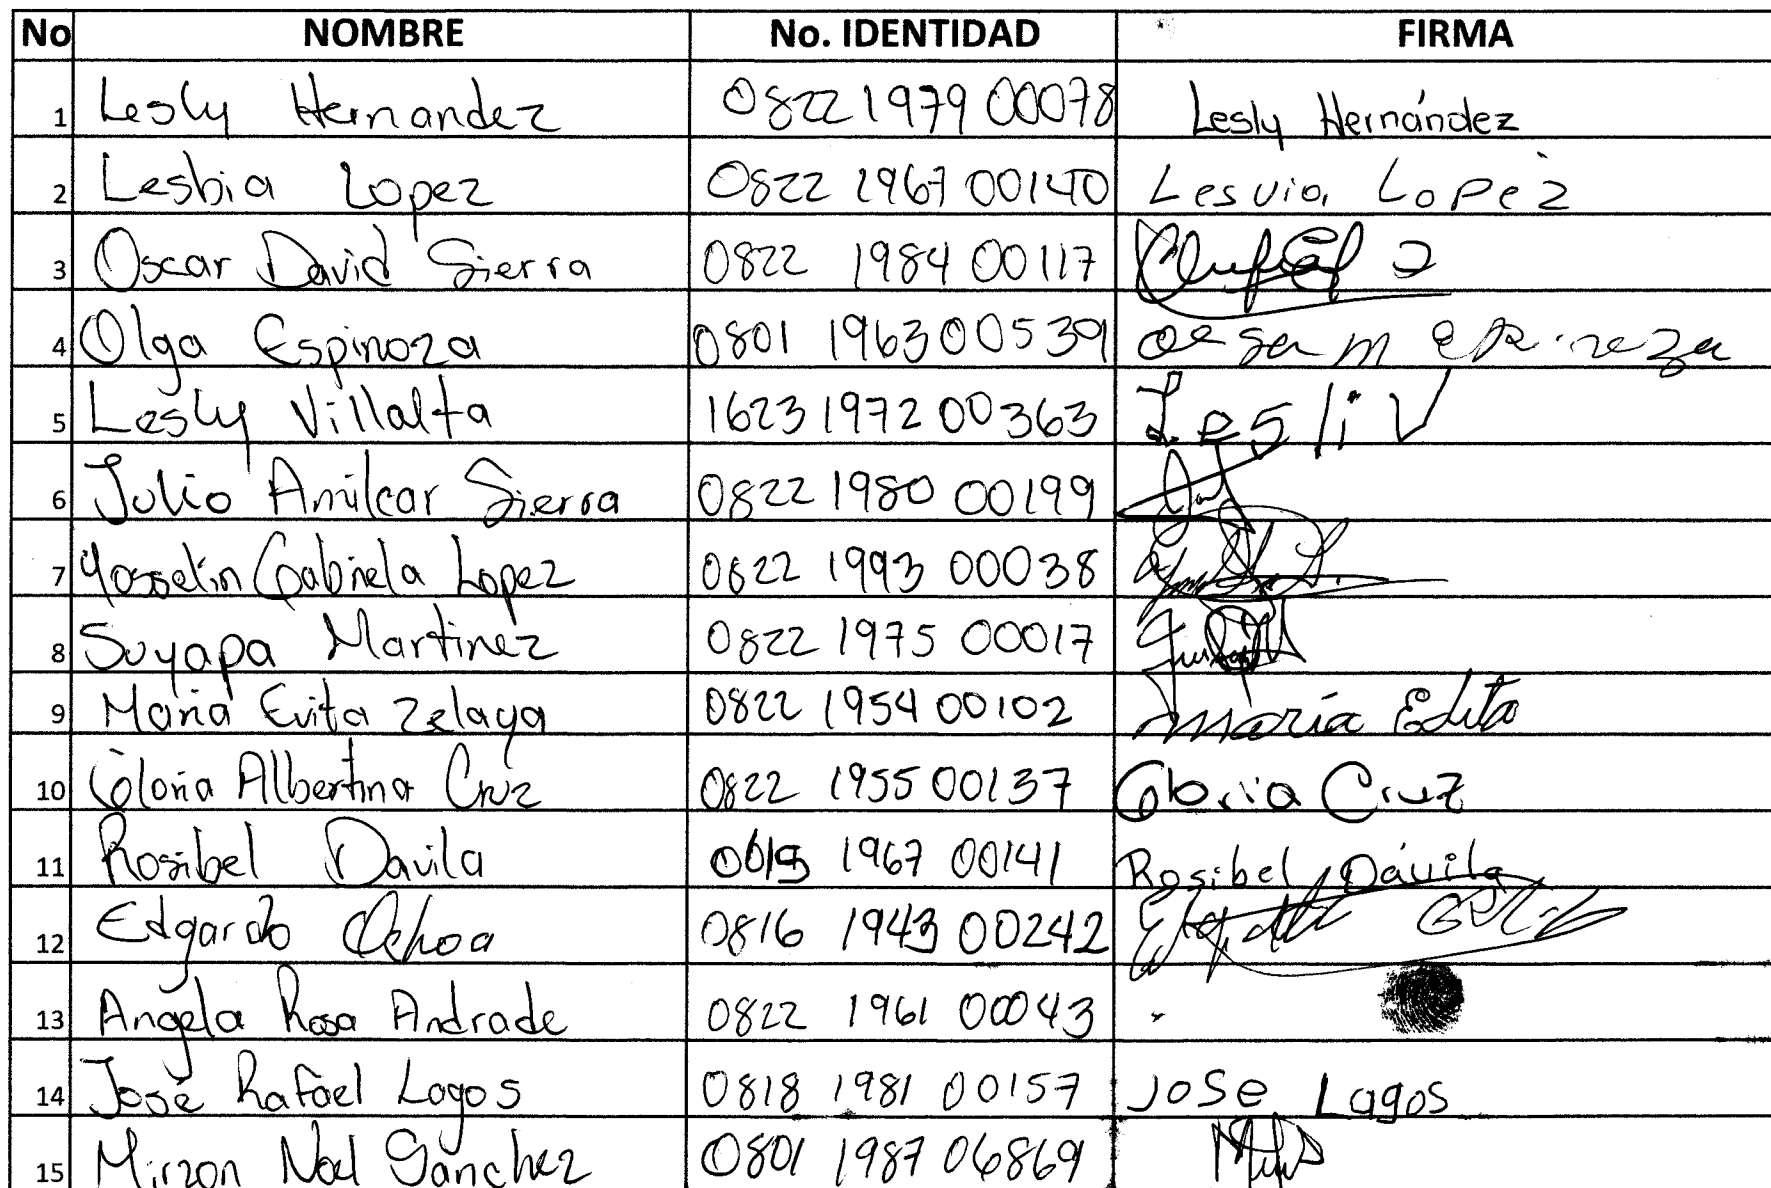 No NOMBRE No. IDENTIDAD FIRMA
1 Lesly Hernandez 0822 1979 00078 Lesly Hernández
2 Lesbia Lopez 0822 1967 00140 Lesvia Lopez
3 Oscar David Sierra 0822 1984 00117
4 Olga Espinoza 0801 1963 00539
5 Lesly Villalta 1623 1972 00363 Lesli V
6 Julio Amilcar Sierra 0822 1980 00199
7 Yosselin Gabriela Lopez 0822 1993 00038
8 Suyapa Martinez 0822 1975 00017
9 Maria Evita Zelaya 0822 1954 00102 María Edita
10 Gloria Albertina Cruz 0822 1955 00137 Gloria Cruz
11 Rosibel Davila 1967 00141 Rosibel Dávila
12 Edgardo Ochoa 0816 1943 00242
13 Angela Rosa Andrade 0822 1961 00043
14 José Rafael Lagos 0818 1981 00157 Jose Lagos
15 Mirzon Noel Sanchez 0801 1987 06869